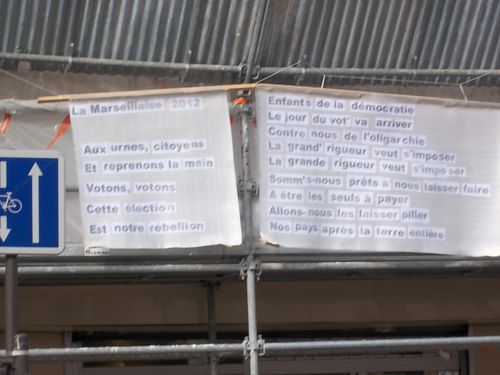 La Marseillaise 2012
Aux urnes, citoyens
Et reprenons la main
Votons, votons
Cette élection
Est notre rébellion
Enfants de la démocratie
Le jour du vot' va arriver
Contre nous de l'oligarchie
La grand' rigueur veut s'imposer
La grande rigueur veut s'imposer
Somm's-nous prêts à nous laisser faire
A être les seuls à payer
Allons-nous les laisser piller
Nos pays après la terre entière